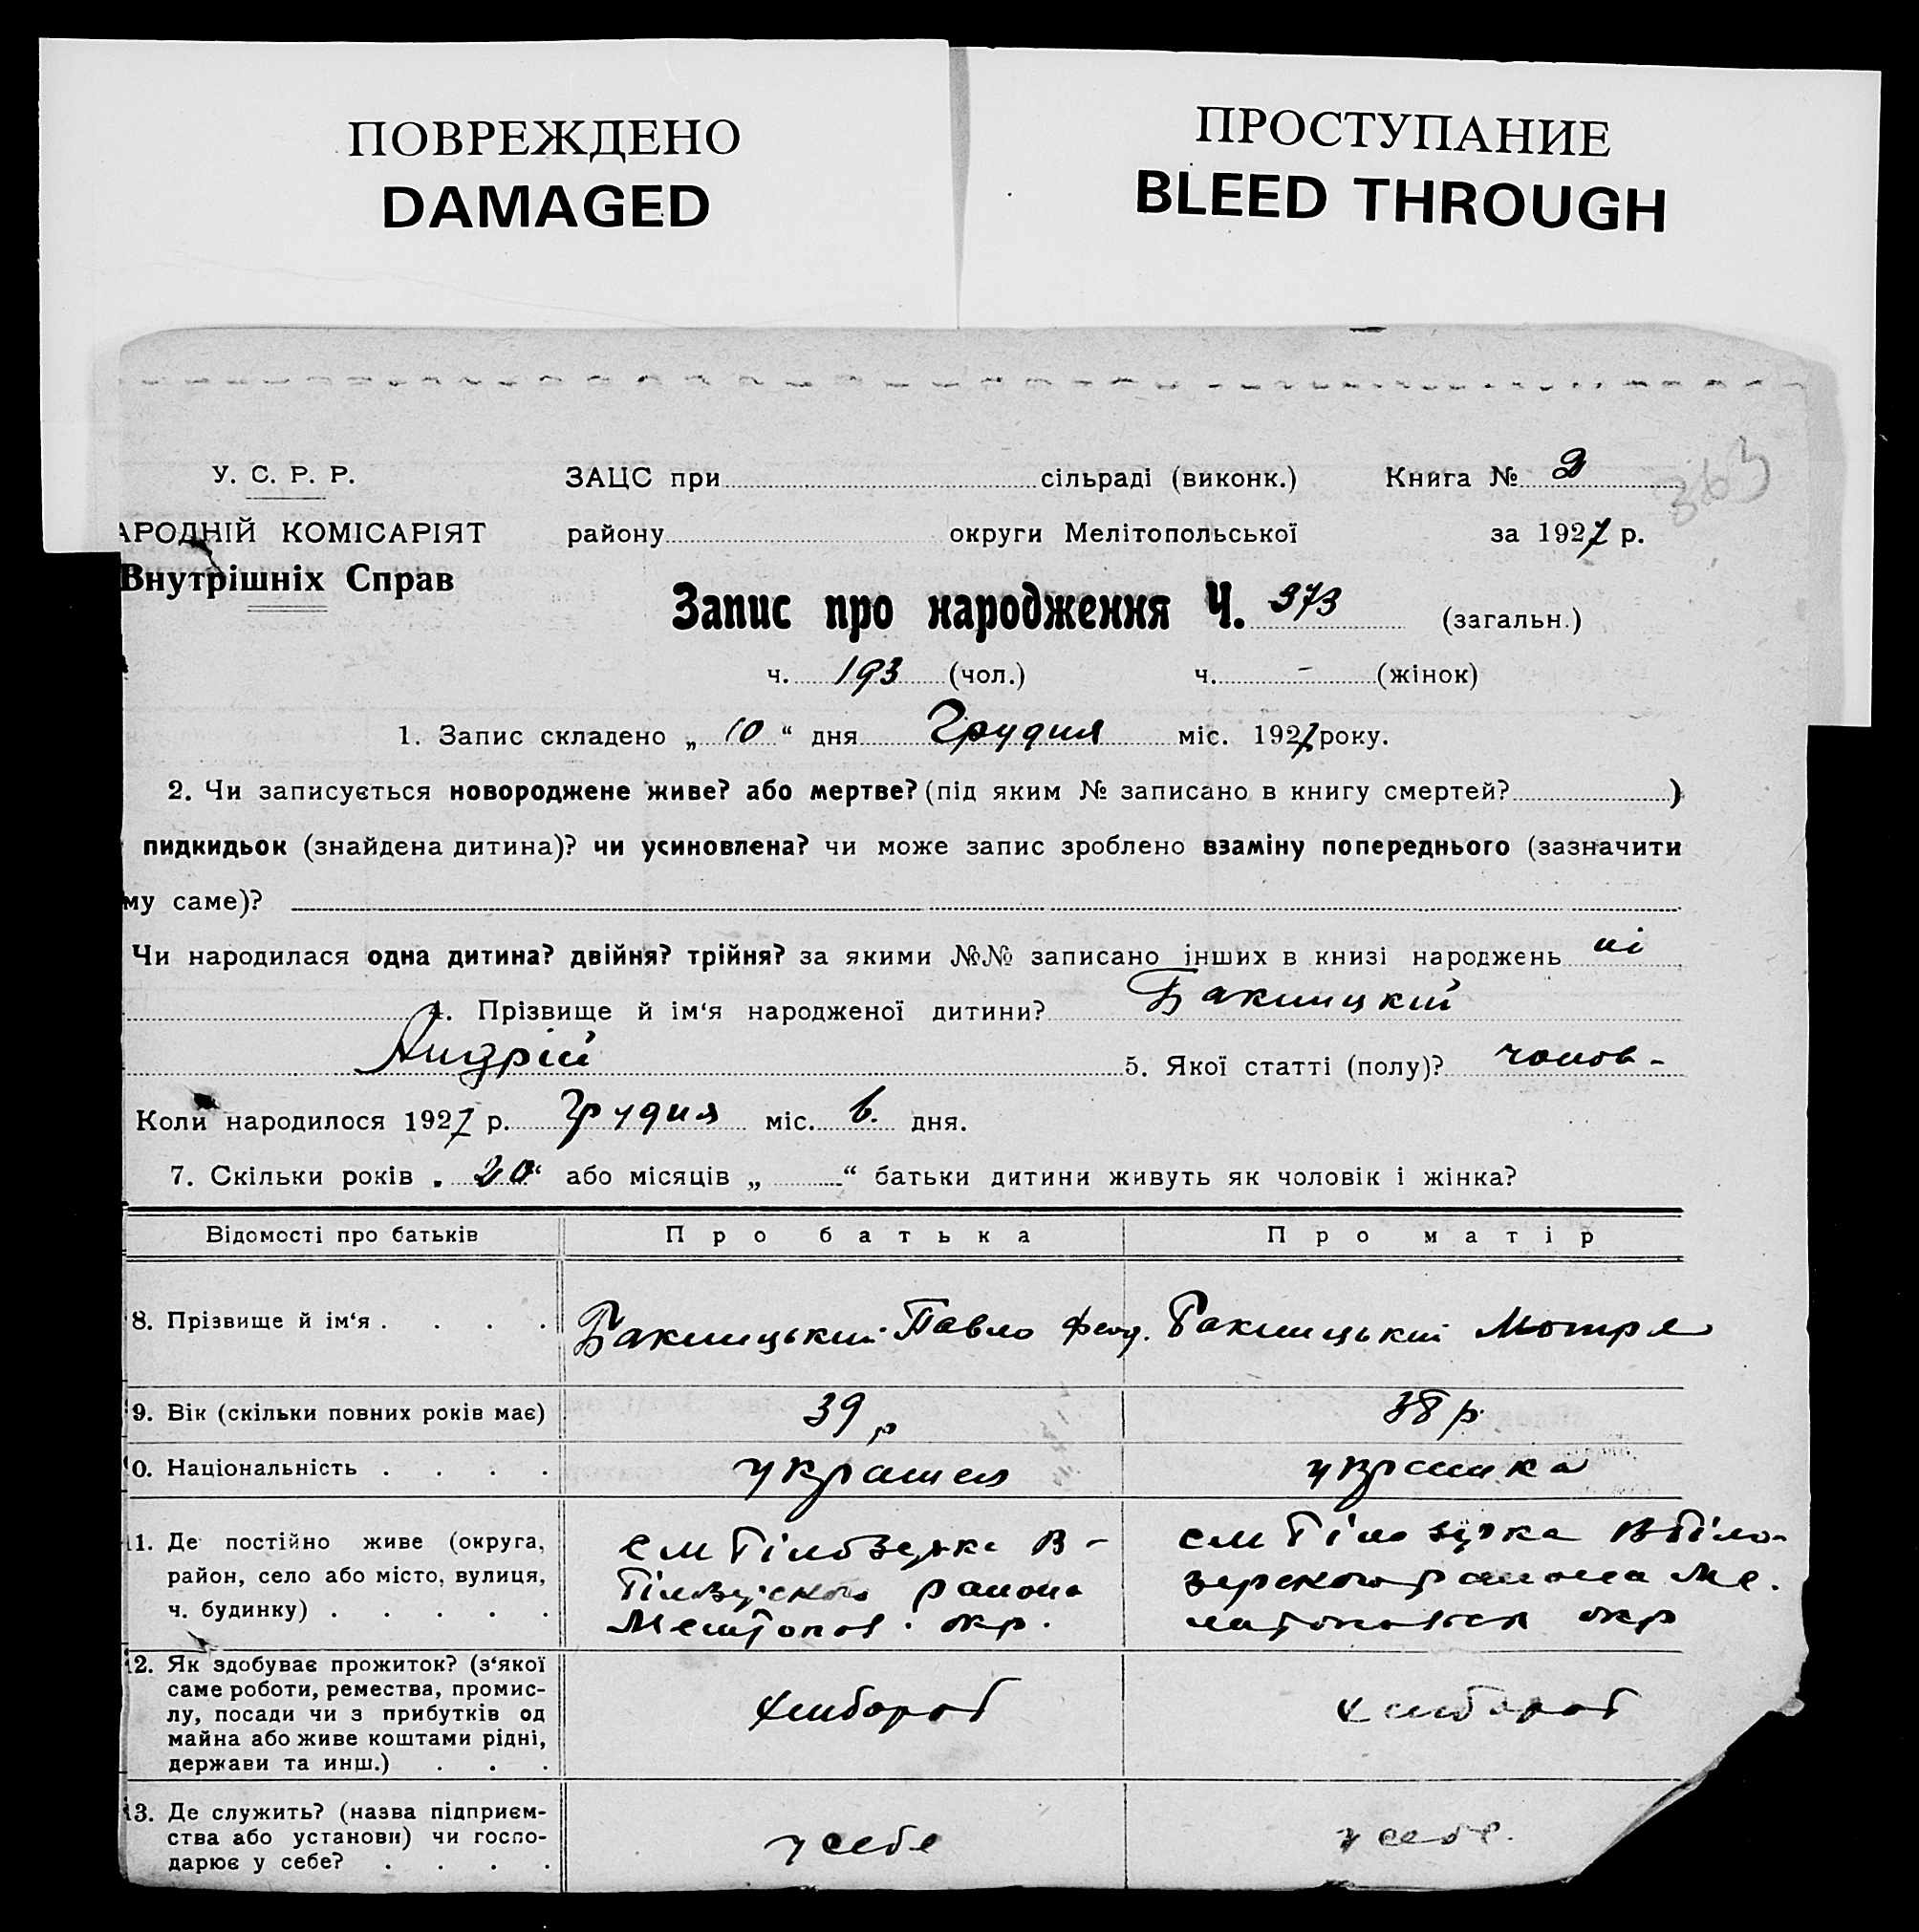 ПОВРЕЖДЕНО
DAMAGED
ПРОСТУПАНИЕ
BLEED THROUGH
363
У. С. Р. Р.
АРОДНІЙ КОМІСАРІЯТ
Внутрішніх Справ
ЗАЦС при сільраді (виконк.) Книга № 2
району округи Мелітопольської за 1927 р.
Запис про народження Ч. 373 (загальн.)
ч. 193 (чол.) ч. - (жінок)
1. Запис складено „ 10 “ дня Грудня міс. 1927 року.
2. Чи записується новороджене живе? або мертве? (під яким № записано в книгу смертей? )
пидкидьок (знайдена дитина)? чи усиновлена? чи може запис зроблено взаміну попереднього (зазначити
му саме)?
Чи народилася одна дитина? двійня? трійня? за якими №№ записано інших в книзі народжень ні
4. Прізвище й ім‘я народженої дитини? Бакшицкий
Андрій 5. Якої статті (полу)? чолов-
Коли народилося 1927 р. Грудня міс. 6. дня.
7. Скільки років „ 20 “ або місяців „ “ батьки дитини живуть як чоловік і жінка?
Відомості про батьків Про батька Про матір
8. Прізвище й ім‘я . . . . Павло Феод. Мотря
9. Вік (скільки повних років має) 39 р 38 р.
0. Національність . . . . українка
1. Де постійно живе (округа,
район, село або місто, вулиця,
ч. будинку) . . . . .
окр. окр
2. Як здобуває прожиток? (з‘якої
саме роботи, ремества, промис-
лу, посади чи з прибутків од
майна або живе коштами рідні,
держави та инш.) . . .
хлібороб хлібороб
13. Де служить? (назва підприєм-
ства або установи) чи госпо-
дарює у себе? . . . .
у себе у себе.